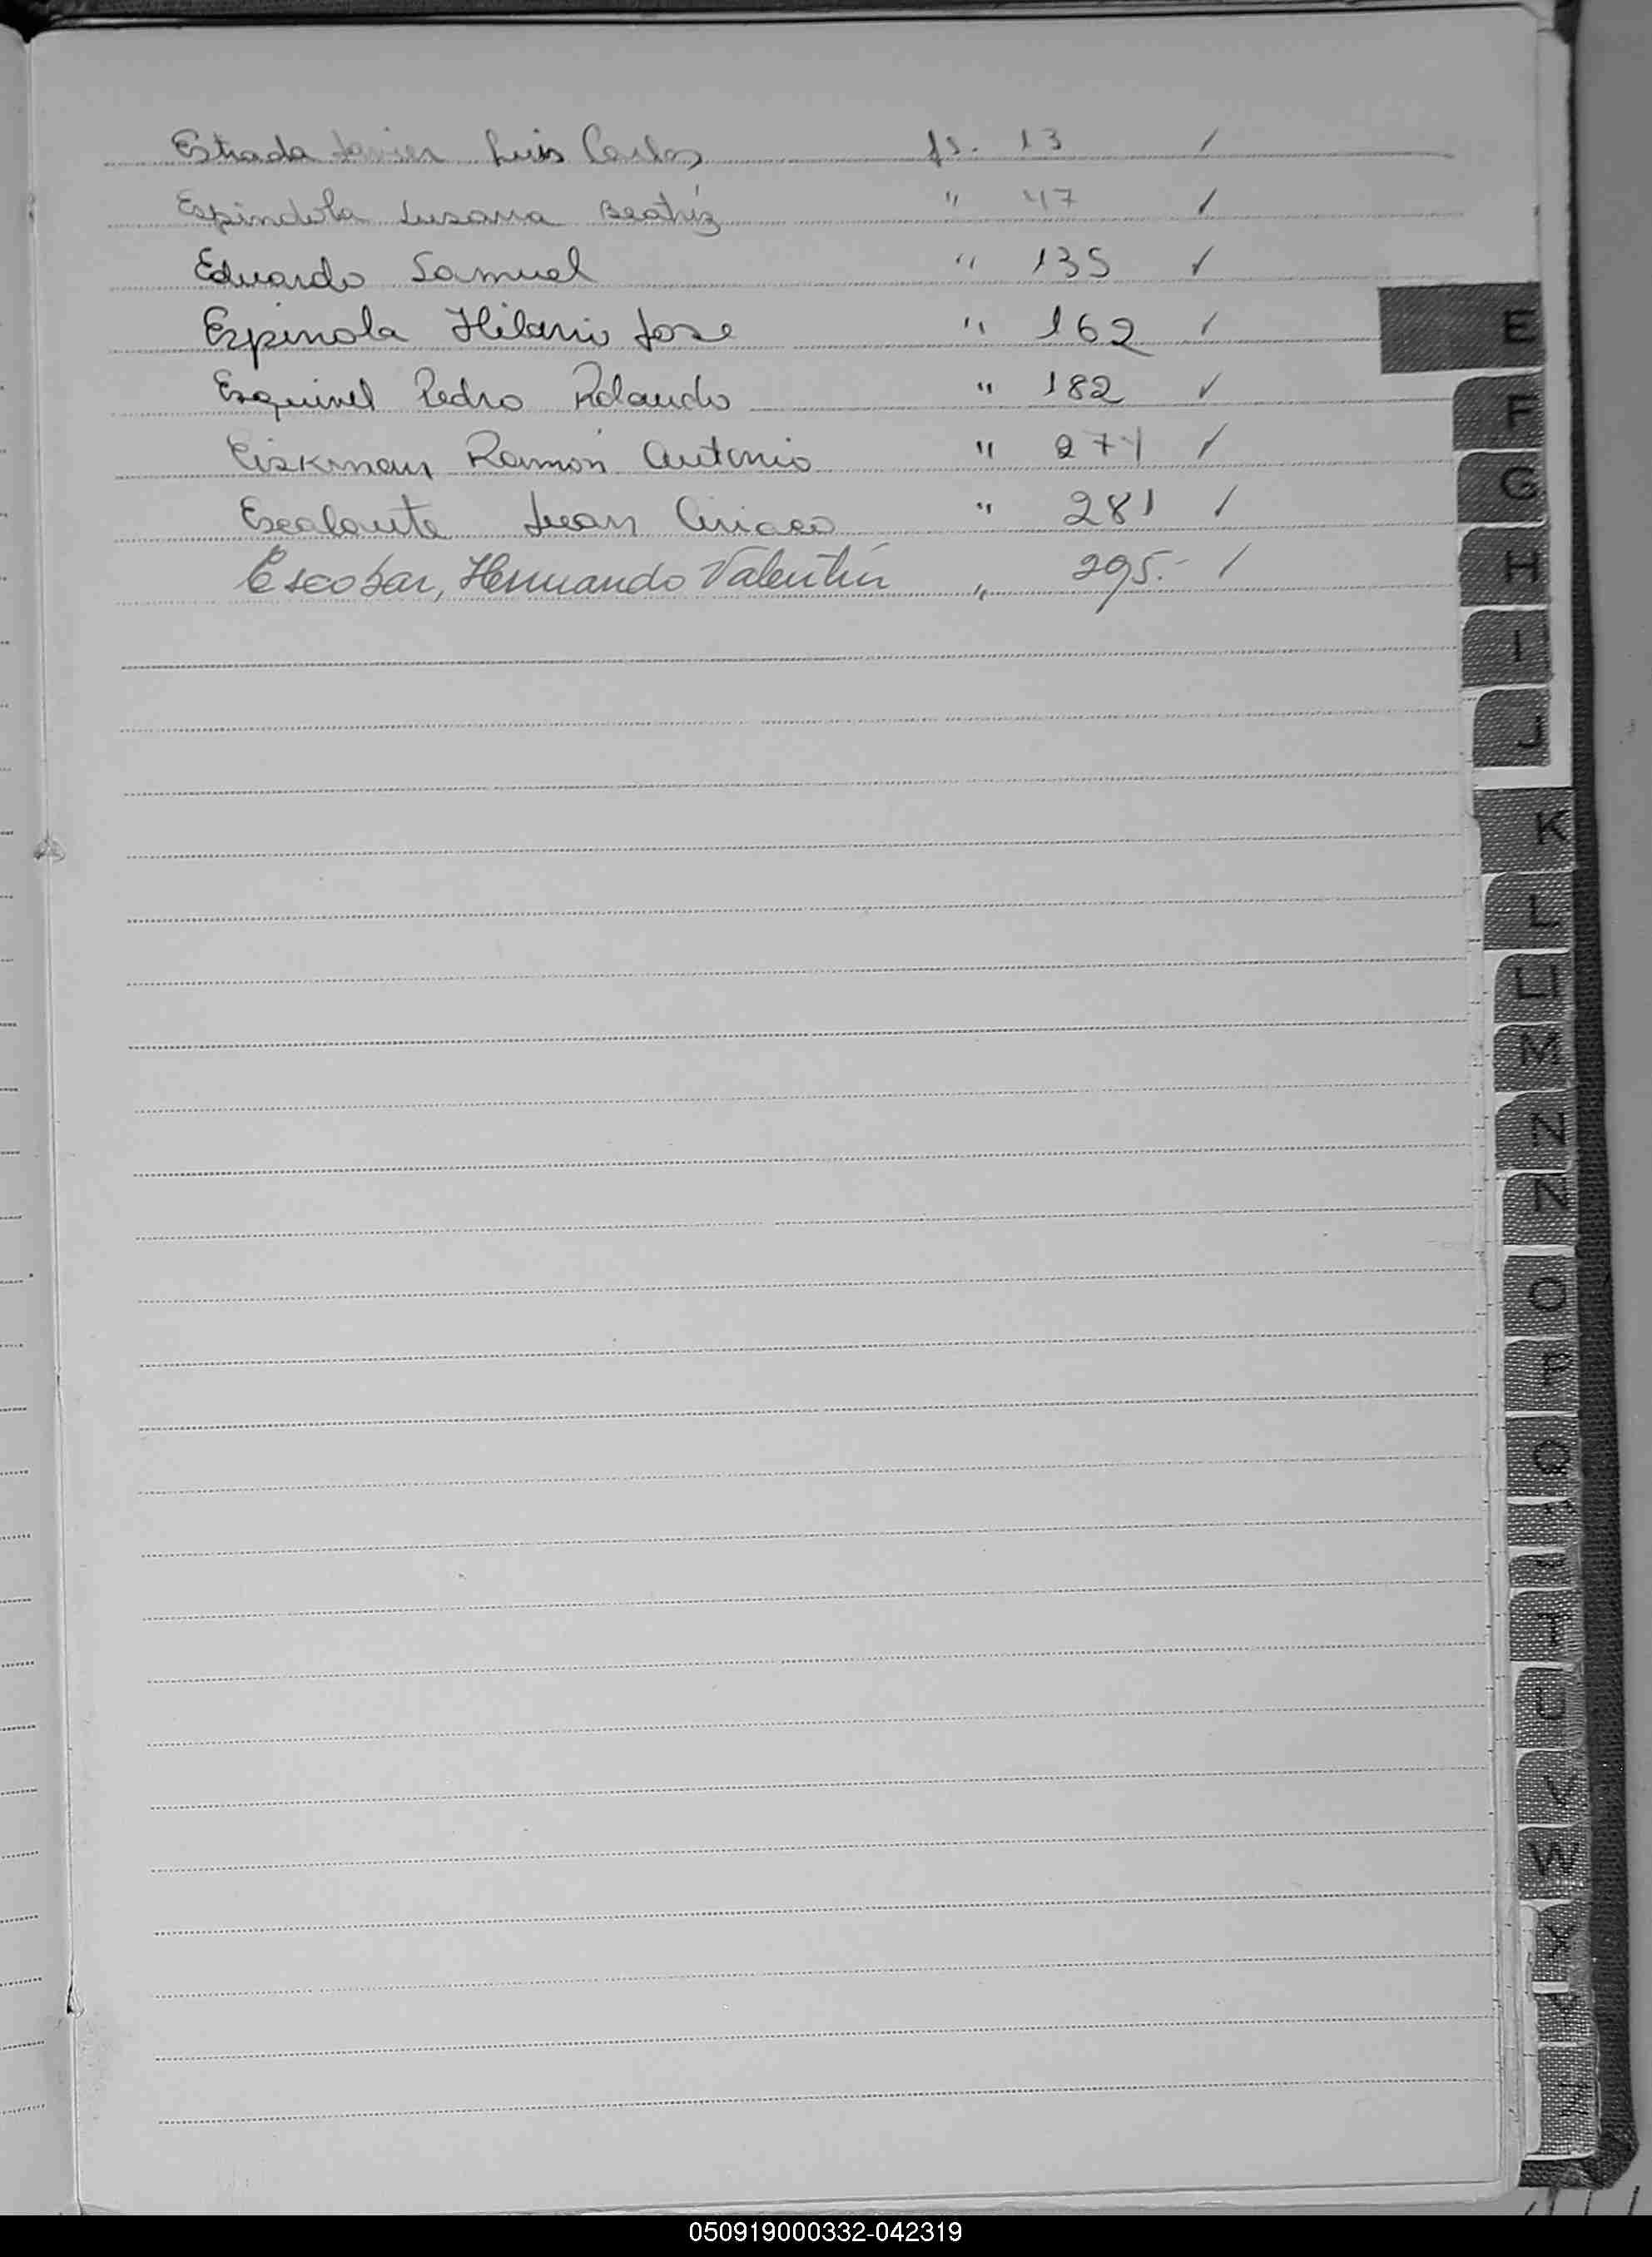 Estrada Javier Luis Carlos fs. 13 /
Espindola Susana Beatríz " 47 /
Eduardo Samuel " 135 /
Espinola Hilario Jose " 162 /
Esquivel Pedro Rolando " 182 /
Eiskman Ramón Antonio " 271 /
Escalante Juan Ciriaco " 281 /
Escobar, Hernando Valentín " 295.- /
E
F
G
H
I
J
K
L
LL
M
N
Ñ
O
P
Q
T
U
V
W
X
Y
Z
050919000332-042319